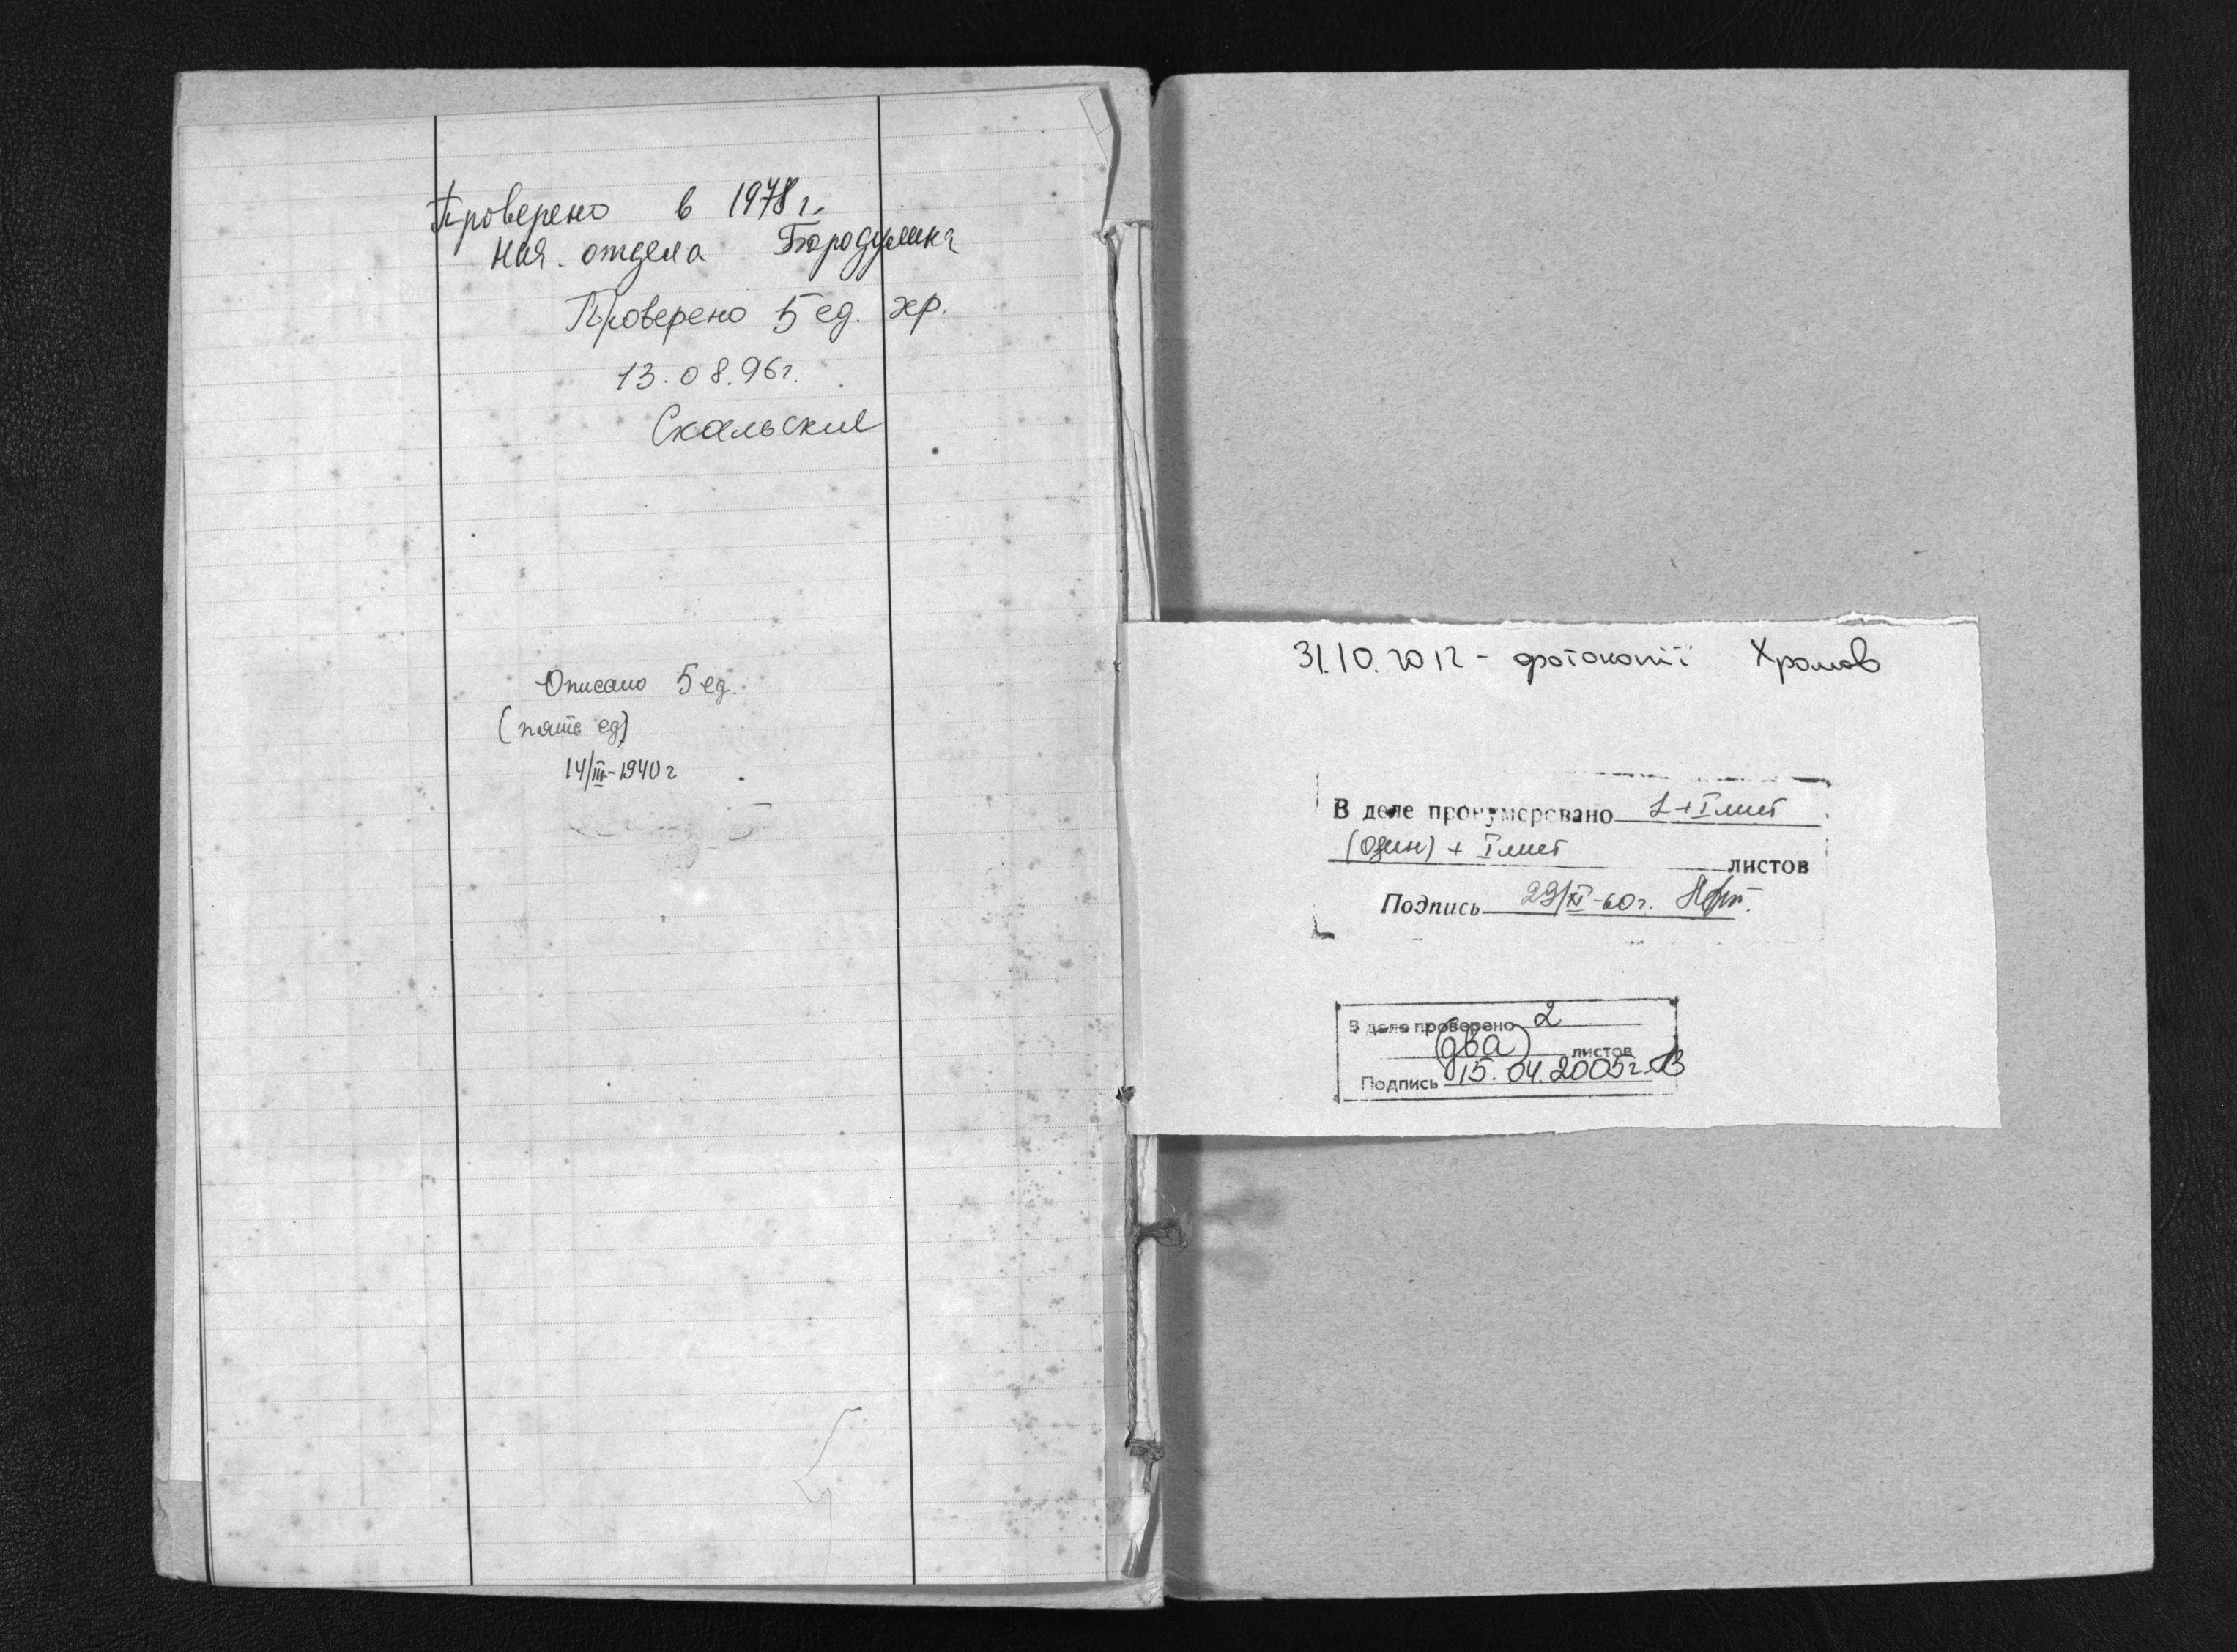 Проверено в 1978 г.
Нач. отдела Бородулина
Проверено 5 ед. хр.
13.08.96г.
Скальский
Описано 5 ед.
(пять ед)
14/III-1940г
31.10.2012 - фотокопії Хромов
В деле пронумеровано 1 + I лист
(один) + I лист листов
Подпись 29/XI-60г.
В деле проверено 2
(два) листов
Подпись 15.04.2005г.